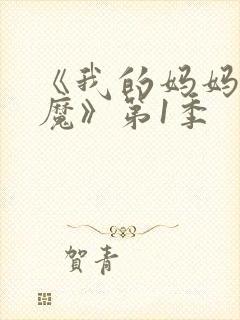 《我的妈妈
魔》第1季
賀青